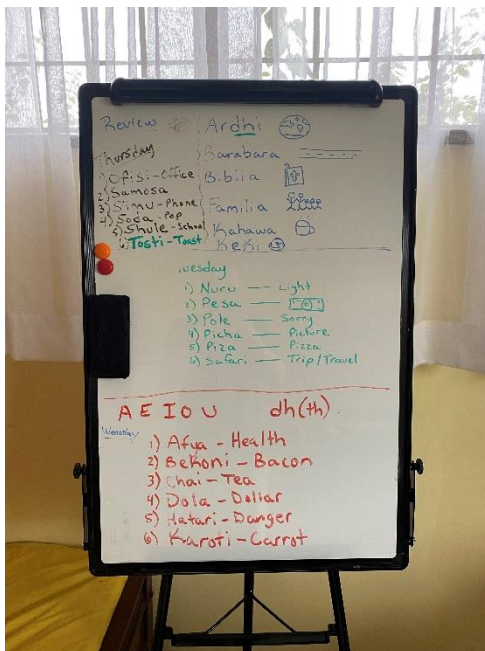 Review
Thursday
1) Ofisi - Office
2) Samosa
3) Simu - Phone
4) Soda - Pop
5) Shule - School
6) Tosti - Toast
Ardhi
Barabara
Bibiia
Familia
Kahawa
Keki
uesday
1) Nuru — Light
2) Pesa —
3) Pole — Sorry
4) Picha — Picture
5) Piza — Pizza
6) Safari — Trip/Travel
A E I O U dh(th)
Wensday
1) Afya - Health
2) Bekoni - Bacon
3) Chai - Tea
4) Dola - Dollar
5) Hatari - Danger
6) Karoti - Carrot